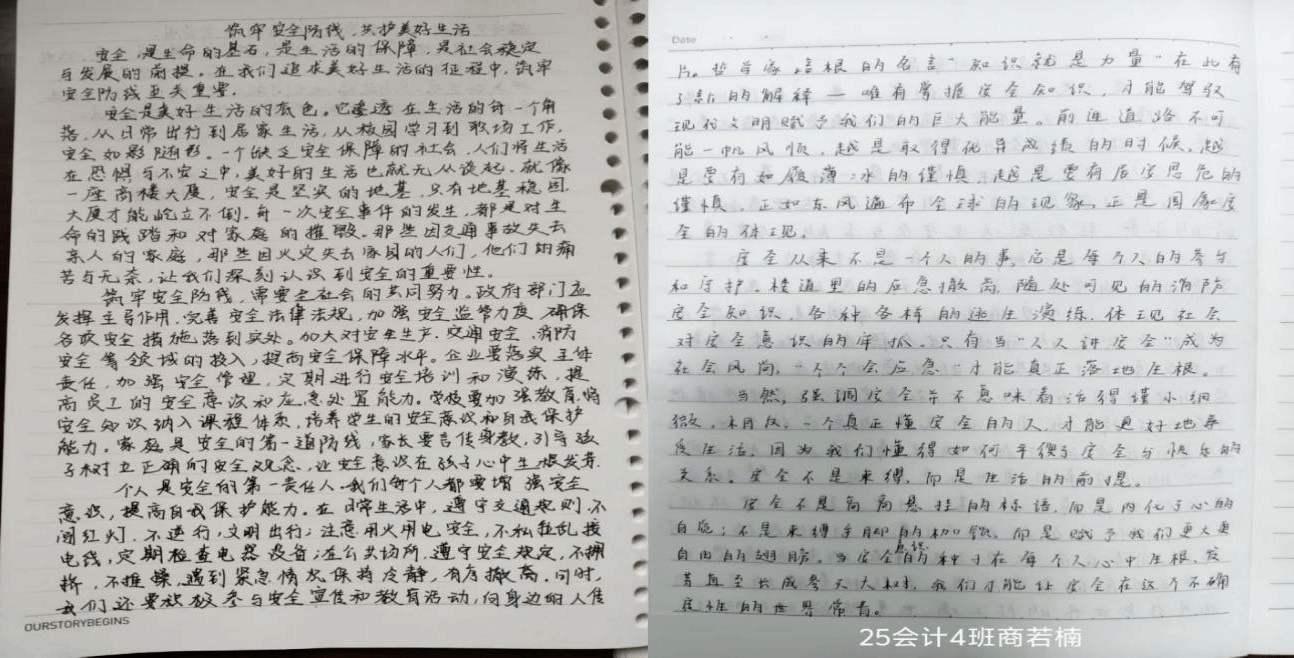 筑牢安全防线,共护美好生活
安全,是生命的基石,是生活的保障,是社会稳定
与发展的前提。在我们追求美好生活的征程中,筑牢
安全防线至关重要。
安全是美好生活的底色。它渗透在生活的每一个角
落,从日常出行到居家生活,从校园学习到职场工作,
安全如影随形。一个缺乏安全保障的社会,人们将生活
在恐惧与不安之中,美好的生活也就无从谈起。就像
一座高楼大厦,安全是坚实的地基,只有地基稳固,
大厦才能屹立不倒。每一次安全事件的发生,都是对生
命的践踏和对家庭的摧毁。那些因交通事故失去
亲人的家庭,那些因火灾失去家园的人们,他们的痛
苦与无奈,让我们深刻认识到安全的重要性。
筑牢安全防线,需要全社会的共同努力。政府部门应
发挥主导作用,完善安全法律法规,加强安全监管力度,确保
各项安全措施落到实处。加大对安全生产、交通安全、消防
安全等领域的投入,提高安全保障水平。企业要落实主体
责任,加强安全管理,定期进行安全培训和演练,提
高员工的安全意识和应急处置能力。学校要加强教育,将
安全知识纳入课程体系,培养学生的安全意识和自我保护
能力。家庭是安全的第一道防线,家长要言传身教,引导孩
子树立正确的安全观念,让安全意识在孩子心中生根发芽。
个人是安全的第一责任人。我们每个人都要增强安全
意识,提高自我保护能力。在日常生活中,遵守交通规则,不
闯红灯,不逆行,文明出行;注意用火用电安全,不私拉乱接
电线,定期检查电器设备;在公共场所,遵守安全规定,不拥
挤,不推搡,遇到紧急情况保持冷静,有序撤离。同时,
我们还要积极参与安全宣传和教育活动,向身边的人传
OURSTORYBEGINS
Date
片。哲学家培根的名言"知识就是力量"在此有
了新的解释——唯有掌握安全知识,才能驾驭
现代文明赋予我们的巨大能量。前进道路不可
能一帆风顺,越是取得优异成绩的时候,越
是要有如履薄冰的谨慎,越是要有居安思危的
谨慎,正如东风遍布全球的现象,正是国家安
全的体现。
安全从来不是一个人的事,它是每个人的参与
和守护。楼道里的应急撤离,随处可见的消防
安全知识,各种各样的逃生演练,体现社会
对安全意识的牢抓。只有当"人人讲安全"成为
社会风尚,"个个会应急"才能真正落地生根。
当然,强调安全并不意味着活得谨小细
微,相反,一个真正懂安全的人,才能更好地享
受生活,因为我们懂得如何平衡安全与快乐的
关系。安全不是束缚,而是生活的前提。
安全不是高高悬挂的标语,而是内化于心的
自觉;不是束缚手脚的枷锁,而是赋予我们更大更
自由的翅膀。当安全意识的种子在每个人心中生根、发
芽直至长成参天大树,我们才能让安全在这个不确
定性的世界常青。
25会计4班商若楠